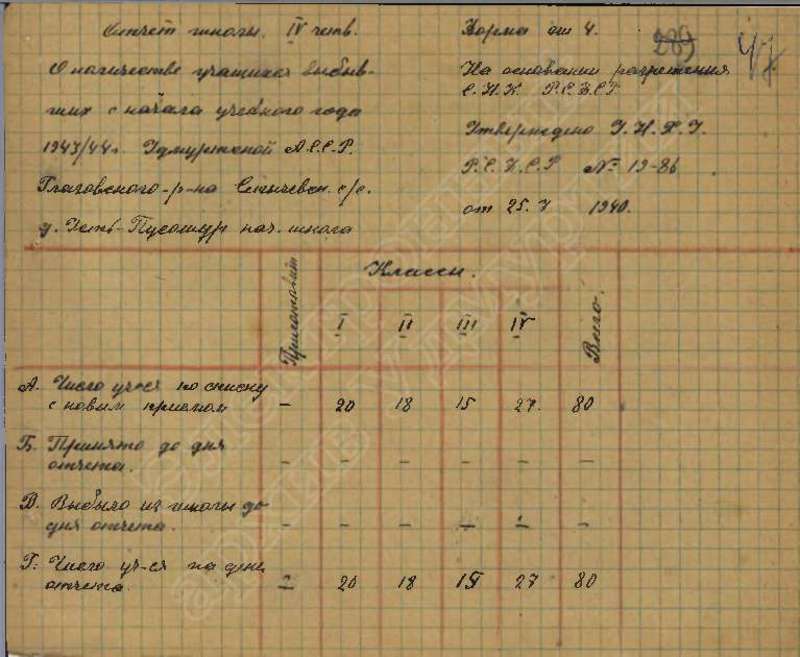 Отчет школы. IV четв.
О количестве учащихся выбыв-
ших с начала учебного года
1943/44г. Удмуртской А.С.С.Р.
Глазовского р-на с/с.
д. Усть-Пусошур нач. школа
Форма от 4.
На основании разрешения
С.Н.К. Р.С.Ф.С.Р.
Утверждено У.Н.Х.У.
Р.С.Ф.С.Р № 19-86
от 25.V 1940.
289
Классы.
I II III IV Всего.
А. Число уч-ся по списку
с новым приемом – 20 18 15 27. 80
Б. Принято до дня
отчета. – – – – – –
В. Выбыло из школы до
дня отчета. – – – – – –
Г. Число уч-ся на день
отчета. – 20 18 15 27 80